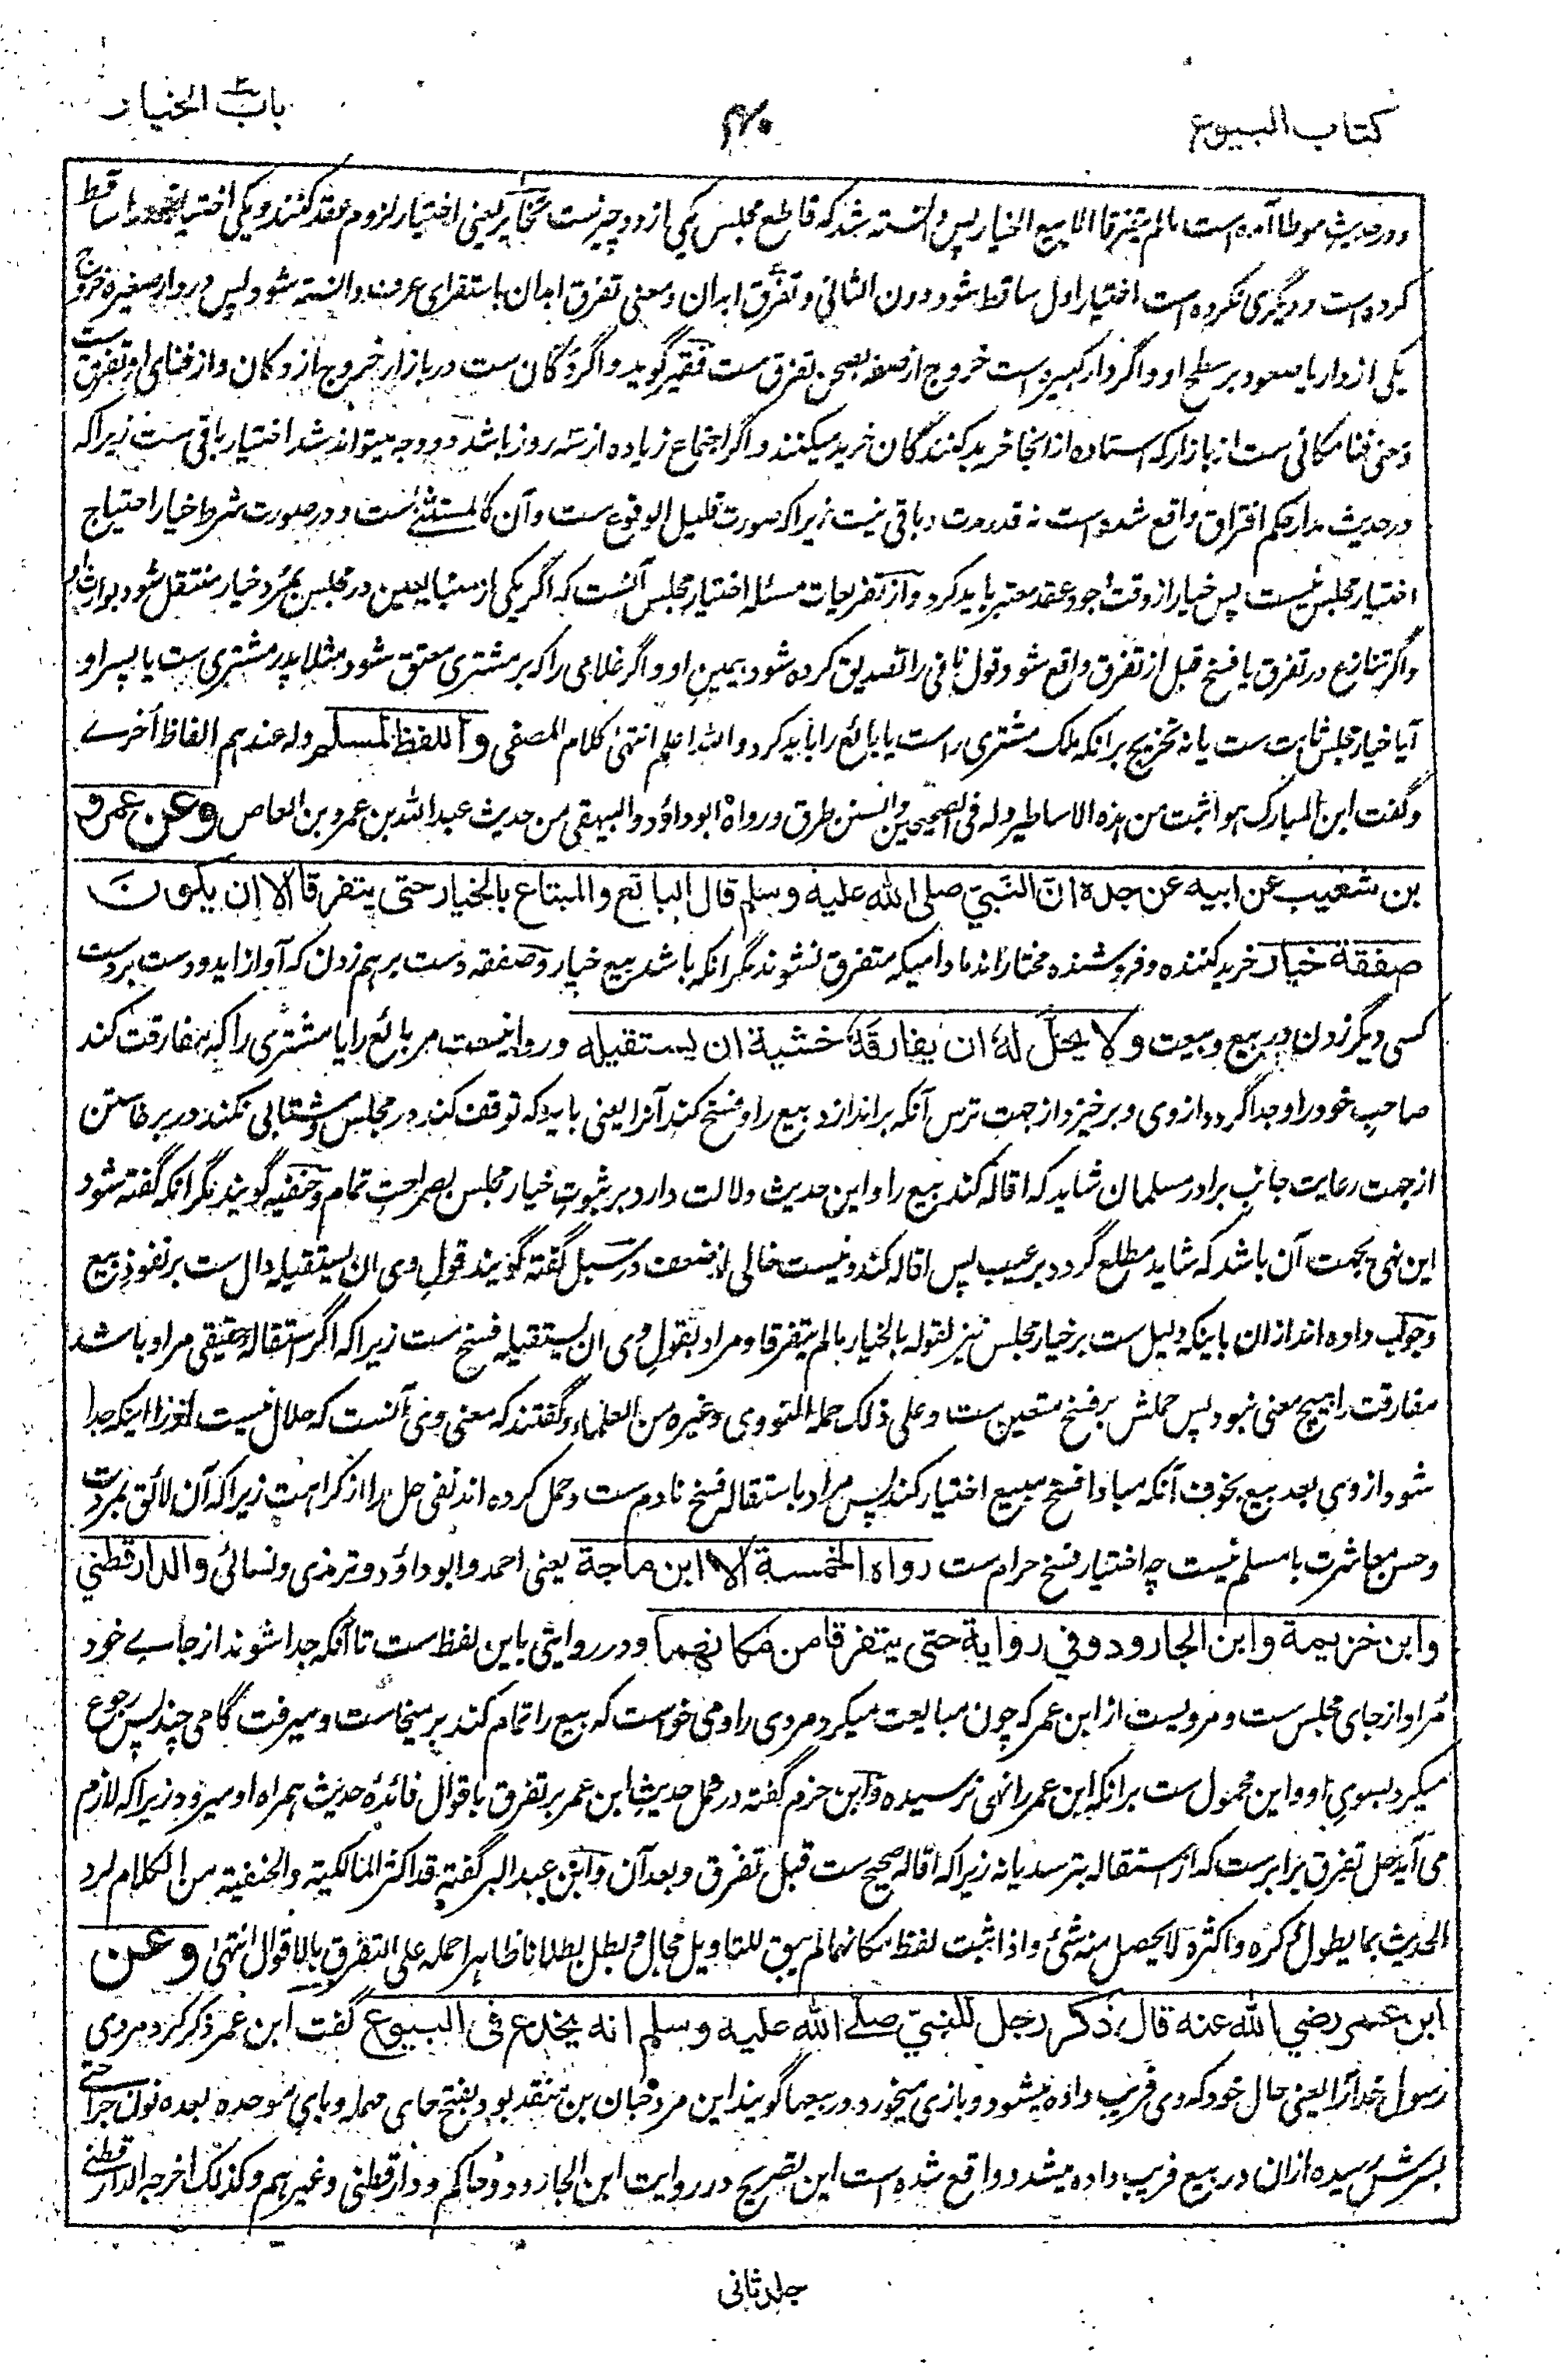 كتاب البيوع
۴۰
باب الخيار
ودر حديث موطا آمده است مالم يتفرقا الا بيع الخيار پس دانسته شد كه قاطع مجلس يكى از دو چيزست تخاير يعنى اختيار لزوم عقد كنند ويكى اختيار خود را ساقط
كرده است و ديگرى نكرده است اختيار اول ساقط شود دون الثانى وتفرق ابدان ومعنى تفرق ابدان باستقراى عرف دانسته شود پس در دار صغيره خروج
يكى از دار يا صعود بر سطح او واگر دار كبيره است خروج از صفه بصحن تفرق ست فقير گويد واگر دكان ست در بازار خروج از دكان واز فناى او تفرق ست
ومعنى فنا مكانى ست از بازار كه استاده از انجا خريد كنندگان خريد ميكنند واگر اجتماع زياده از سه روز باشد دو وجه ميتواند شد اختيار باقى ست زيراكه
در حديث مدار حكم افتراق واقع شده است نه قدر مدت و باقى نيست زيراكه صورت قليل الوقوع ست وآن كالمستثنى ست ودر صورت شرط خيار احتياج
اختيار مجلس نيست پس خيار از وقت وجود عقد معتبر بايد كرد واز تفريعات مسئله اختيار مجلس آنست كه اگر يكى از متبايعين در مجلس بمرد خيار منتقل شود بوارث او
واگر تنازع در تفرق يا فسخ قبل از تفرق واقع شود قول نافى را تصديق كرده شود بيمين او واگر غلامى را كه بر مشترى معتق شود مثلا پدر مشترى ست يا پسر او
آيا خيار مجلس ثابت ست يا نه تخريج برانكه ملك مشترى راست يا بائع را بايد كرد والله اعلم انتهى كلام المصفى واللفظ لمسلم وله عندهم الفاظ أخرے
وگفت ابن المبارك هو اثبت من هذه الاساطير وله فى الصحيحين والسنن طرق ورواه ابو داؤد والبيهقى من حديث عبد الله بن عمرو بن العاص وعن عمرو
بن شعيب عن ابيه عن جده ان النبي صلى الله عليه وسلم قال البائع والمبتاع بالخيار حتى يتفرقا الا ان يكون
صفقة خيار خريد كننده وفروشنده مختاراند ماداميكه متفرق نشوند مگر انكه باشد بيع خيار وصفقه دست بر هم زدن كه آواز ايد ودست بردست
كسى ديگر زدن در بيع وبيعت ولا يحل له ان يفارقه خشية ان يستقيله وروا نيست مر بائع را يا مشترى را كه مفارقت كند
صاحب خود را وجدا گردد از وى وبرخيزد از جهت ترس آنكه براندازد بيع را وفسخ كند آنرا يعنى بايد كه توقف كند در مجلس وشتابى نكند در برخاستن
از جهت رعايت جانب برادر مسلمان شايد كه اقاله كند بيع را واين حديث دلالت دارد بر ثبوت خيار مجلس بصراحت تمام وحنفيه گويند مگر انكه گفته شود
اين نهى بجهت آن باشد كه شايد مطلع گردد بر عيب پس اقاله كند ونيست خالى از ضعف ودر سبل گفته گويند قول وى ان يستقيله دال ست بر نفوذ بيع
وجواب داده اند ازان باينكه دليل ست بر خيار مجلس نيز لقوله بالخيار مالم يتفرقا ومراد بقول وى ان يستقيله فسخ ست زيراكه اگر استقاله حقيقى مراد باشد
مفارقت را هيچ معنى نبود پس حملش بر فسخ متعين ست وعلى ذلك حمله النووى وغيره من العلماء وگفتند كه معنى وى آنست كه حلال نيست او را اينكه جدا
شود از وى بعد بيع بخوف آنكه مبادا فسخ مبيع اختيار كند پس مراد باستقاله فسخ نادم ست وحمل كرده اند نفى حل را از كراهت زيراكه آن لائق بمروت
وحسن معاشرت با مسلم نيست چه اختيار فسخ حرام ست رواه الخمسة الا ابن ماجة يعنى احمد وابو داؤد وترمذى ونسائى والدارقطني
وابن خزيمة وابن الجارود وفي رواية حتى يتفرقا من مكانهما ودر روايتى باين لفظ ست تا آنكه جدا شوند از جاے خود
مراد از جاى مجلس ست ومرويست از ابن عمر كه چون مبايعت ميكرد مردى را ومى خواست كه بيع را تمام كند بر ميخاست وميرفت گامى چند پس رجوع
ميكرد بسوى او واين محمول ست برانكه ابن عمر را نهى نرسيده وابن حزم گفته در حمل حديث ابن عمر بر تفرق باقوال فائدهٔ حديث همراه او ميرود زيراكه لازم
مى آيد حل تفرق برابرست كه از استقاله بترسد يا نه زيراكه اقاله صحيح ست قبل تفرق وبعد آن وابن عبد البر گفته قد اكثر المالكية والحنفية من الكلام لرد
الحديث بما يطول ذكره واكثره لا يحصل منه شئ واذا ثبت لفظ مكانهما لم يبق للتاويل مجال وبطل بطلانا ظاهرا حمله على التفرق بالاقوال انتهى وعن
ابن عمر رضي الله عنه قال ذكر رجل للنبي صلى الله عليه وسلم انه يخدع فى البيوع گفت ابن عمر ذكر كرد مردى
رسول خدا را يعنى حال خود كه وى فريب داده ميشود وبازى ميخورد در بيعها گويند اين مرد حبان بن منقذ بود بفتح حاى مهمله وباى موحده بعده نون جراحتى
بسرش رسيده ازان در بيع فريب داده ميشد وواقع شده است اين تصريح در روايت ابن الجارود وحاكم ودارقطنى وغيرهم وكذلك اخرجه الدارقطنى
جلد ثانى